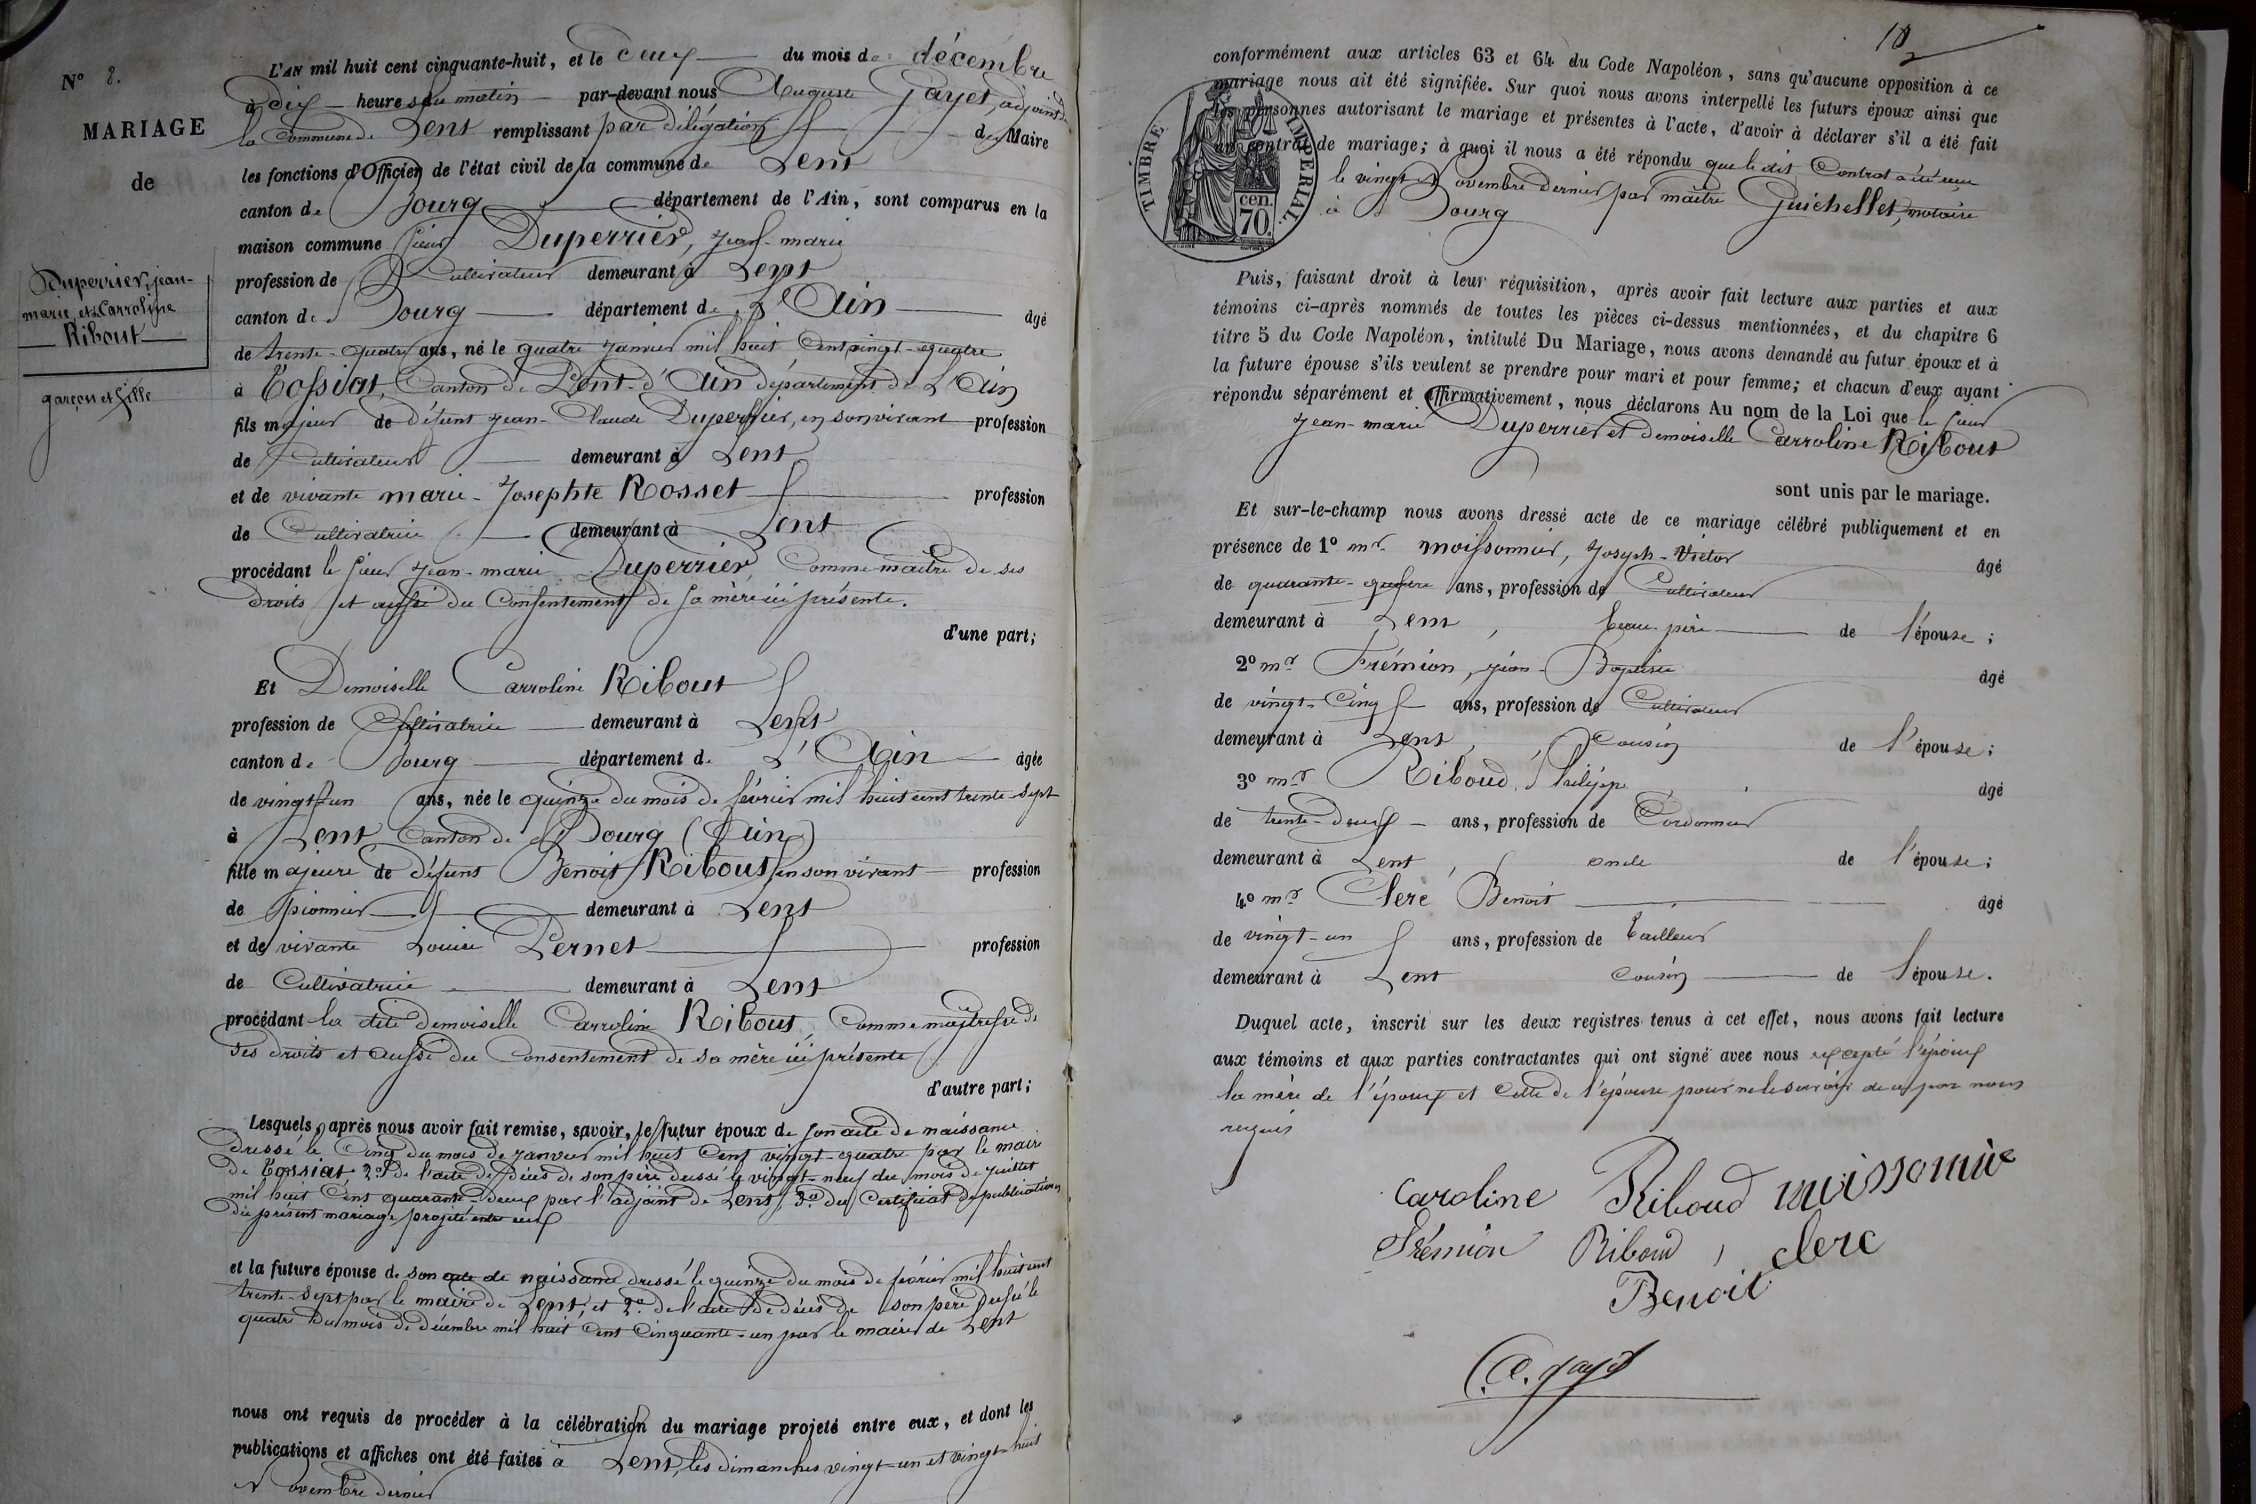 N° 8.
MARIAGE
de
Duperrier, jean-
marie et Carroline
Ribout
garçon et fille
L'AN mil huit cent cinquante-huit, et le deux du mois de décembre
à dix heures du matin par-devant nous Auguste Gayet, adjoint de
la commune de Lent remplissant par délégation du Maire
les fonctions d'Officier de l'état civil de la commune de Lent
canton de Bourg département de l'Ain, sont comparus en la
maison commune sieur Duperrier, jean-marie
profession de Cultivateur demeurant à Lent
canton de Bourg département de L'Ain âgé
de trente-quatre ans, né le quatre janvier mil huit cent vingt-quatre
à Tossiat, Canton de Pont-d'Ain département de L'Ain
fils majeur de défunt jean-Claude Duperrier, en son vivant profession
de Cultivateur demeurant à Lent
et de vivante marie-Josephte Rosset profession
de Cultivatrice demeurant à Lent
procédant le sieur jean-marie Duperrier, Comme maître de ses
droits et aussi du Consentement de sa mère ici présente.
d'une part;
Et Demoiselle Carroline Ribout
profession de Cultivatrice demeurant à Lent
canton de Bourg département de L'Ain âgée
de vingt-un ans, née le quinze du mois de février mil huit cent trente-sept
à Lent Canton de Bourg (Ain)
fille majeure de défunt Benoit Ribout en son vivant profession
de pionnier demeurant à Lent
et de vivante Louise Pernet profession
de Cultivatrice demeurant à Lent
procédant la dite demoiselle Carroline Ribout, Comme maîtresse de
ses droits et aussi du Consentement de sa mère ici présente
d'autre part;
Lesquels, après nous avoir fait remise, savoir, le futur époux de son acte de naissance
dressé le Cinq du mois de janvier mil huit cent vingt-quatre par le maire
de Tossiat, 2° de l'acte de décès de son père dressé le vingt-neuf du mois de juillet
mil huit cent quarante-deux par l'adjoint de Lent, 3° du Certificat de publications
du présent mariage projeté entre eux
et la future épouse de son acte de naissance dressé le quinze du mois de février mil huit cent
trente-sept par le maire de Lent, et 2° de l'acte de décès de son père dressé le
quatre du mois de décembre mil huit cent Cinquante-un par le maire de Lent
nous ont requis de procéder à la célébration du mariage projeté entre eux, et dont les
publications et affiches ont été faites à Lent, les dimanches vingt-un et vingt-huit
Novembre dernier
conformément aux articles 63 et 64 du Code Napoléon, sans qu'aucune opposition à ce
mariage nous ait été signifiée. Sur quoi nous avons interpellé les futurs époux ainsi que
les personnes autorisant le mariage et présentes à l'acte, d'avoir à déclarer s'il a été fait
un contrat de mariage; à quoi il nous a été répondu que le dit Contrat a été reçu
le vingt Novembre dernier par maître Guichellet, notaire
à Bourg
TIMBRE IMPERIAL.
cen.
70.
Puis, faisant droit à leur réquisition, après avoir fait lecture aux parties et aux
témoins ci-après nommés de toutes les pièces ci-dessus mentionnées, et du chapitre 6
titre 5 du Code Napoléon, intitulé Du Mariage, nous avons demandé au futur époux et à
la future épouse s'ils veulent se prendre pour mari et pour femme; et chacun d'eux ayant
répondu séparément et affirmativement, nous déclarons Au nom de la Loi que le sieur
jean-marie Duperrier et demoiselle Carroline Ribout
sont unis par le mariage.
Et sur-le-champ nous avons dressé acte de ce mariage célébré publiquement et en
présence de 1° mr. moissonnier, Joseph-Victor âgé
de quarante-quatre ans, profession de Cultivateur
demeurant à Lent, beau-père de l'épouse;
2° mr Frémion, jean-Baptiste âgé
de vingt-Cinq ans, profession de Cultivateur
demeurant à Lent, cousin de l'épouse;
3° mr Riboud, Philippe âgé
de trente-deux ans, profession de Cordonnier
demeurant à Lent, oncle de l'épouse;
4° mr Clerc Benoit âgé
de vingt-un ans, profession de tailleur
demeurant à Lent cousin de l'épouse.
Duquel acte, inscrit sur les deux registres tenus à cet effet, nous avons fait lecture
aux témoins et aux parties contractantes qui ont signé avec nous excepté l'époux
la mère de l'époux et Celle de l'épouse pour ne le savoir de ce par nous
requis
Caroline Riboud moissonnié
Frémion Riboud, clerc
Benoit
A. gayet